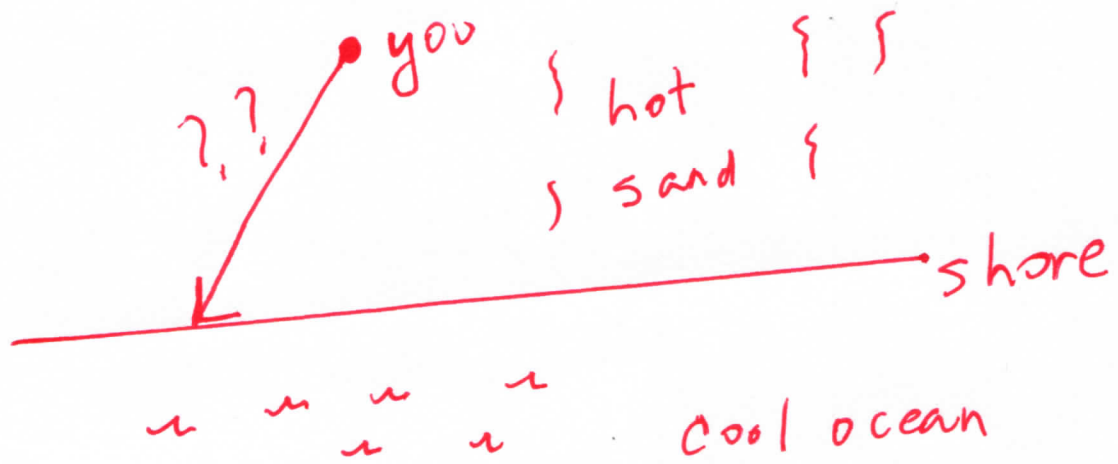 you
??
hot
sand
shore
cool ocean